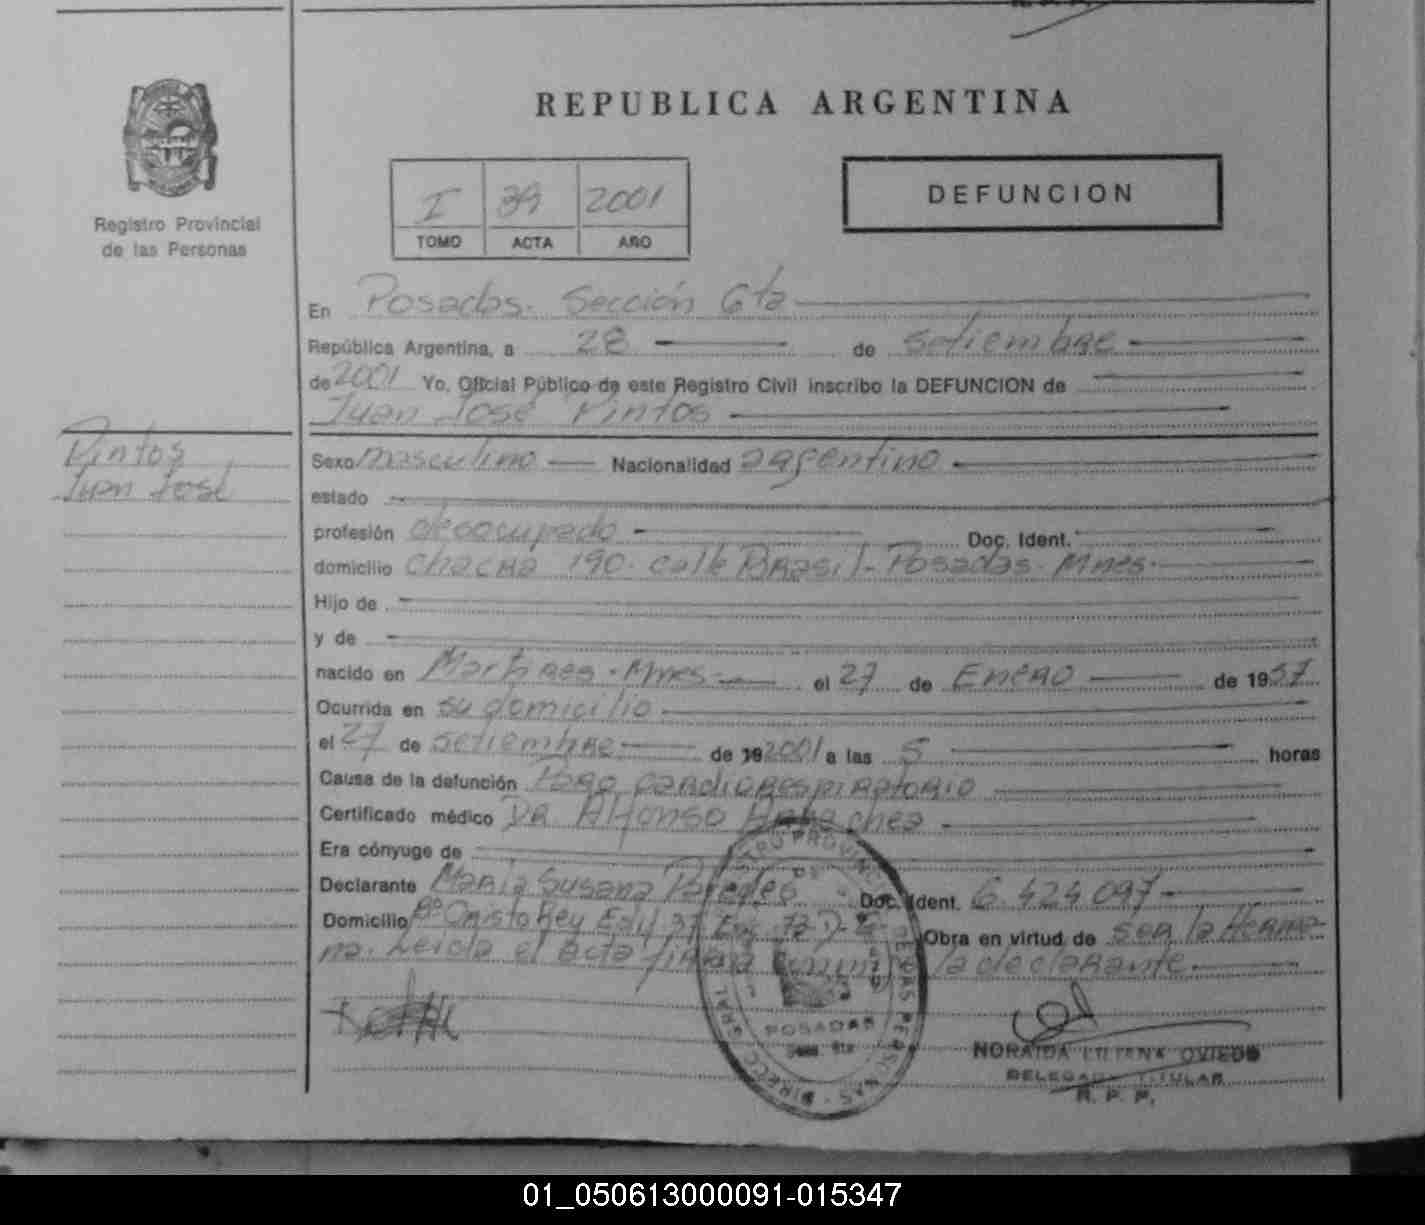 REPUBLICA ARGENTINA
Registro Provincial
de las Personas
I 39 2001
TOMO ACTA AÑO
DEFUNCION
En Posadas. Sección 6ta
República Argentina, a 28 de setiembre
de 2001 Yo, Oficial Público de este Registro Civil inscribo la DEFUNCION de
Juan José Pintos
Pintos
Juan José
Sexo masculino Nacionalidad argentino
estado
profesión desocupado Doc. Ident.
domicilio chacra 190. calle Brasil - Posadas. Mnes.
Hijo de
y de
nacido en Martires - Mnes. el 27 de Enero de 1957
Ocurrida en su domicilio
el 27 de setiembre de 192001 a las 5 horas
Causa de la defunción Paro cardiorespiratorio
Certificado médico Dr Alfonso
Era cónyuge de
Declarante María Susana Paredes Doc. Ident. 6.424.097
Domicilio Bº Cristo Rey Edif 37 Obra en virtud de ser la Herma-
na. Leida el acta firma la declarante.
POSADAS
NORAIDA LILIANA OVIEDO
DELEGADA TITULAR
R. P. P.
01_050613000091-015347